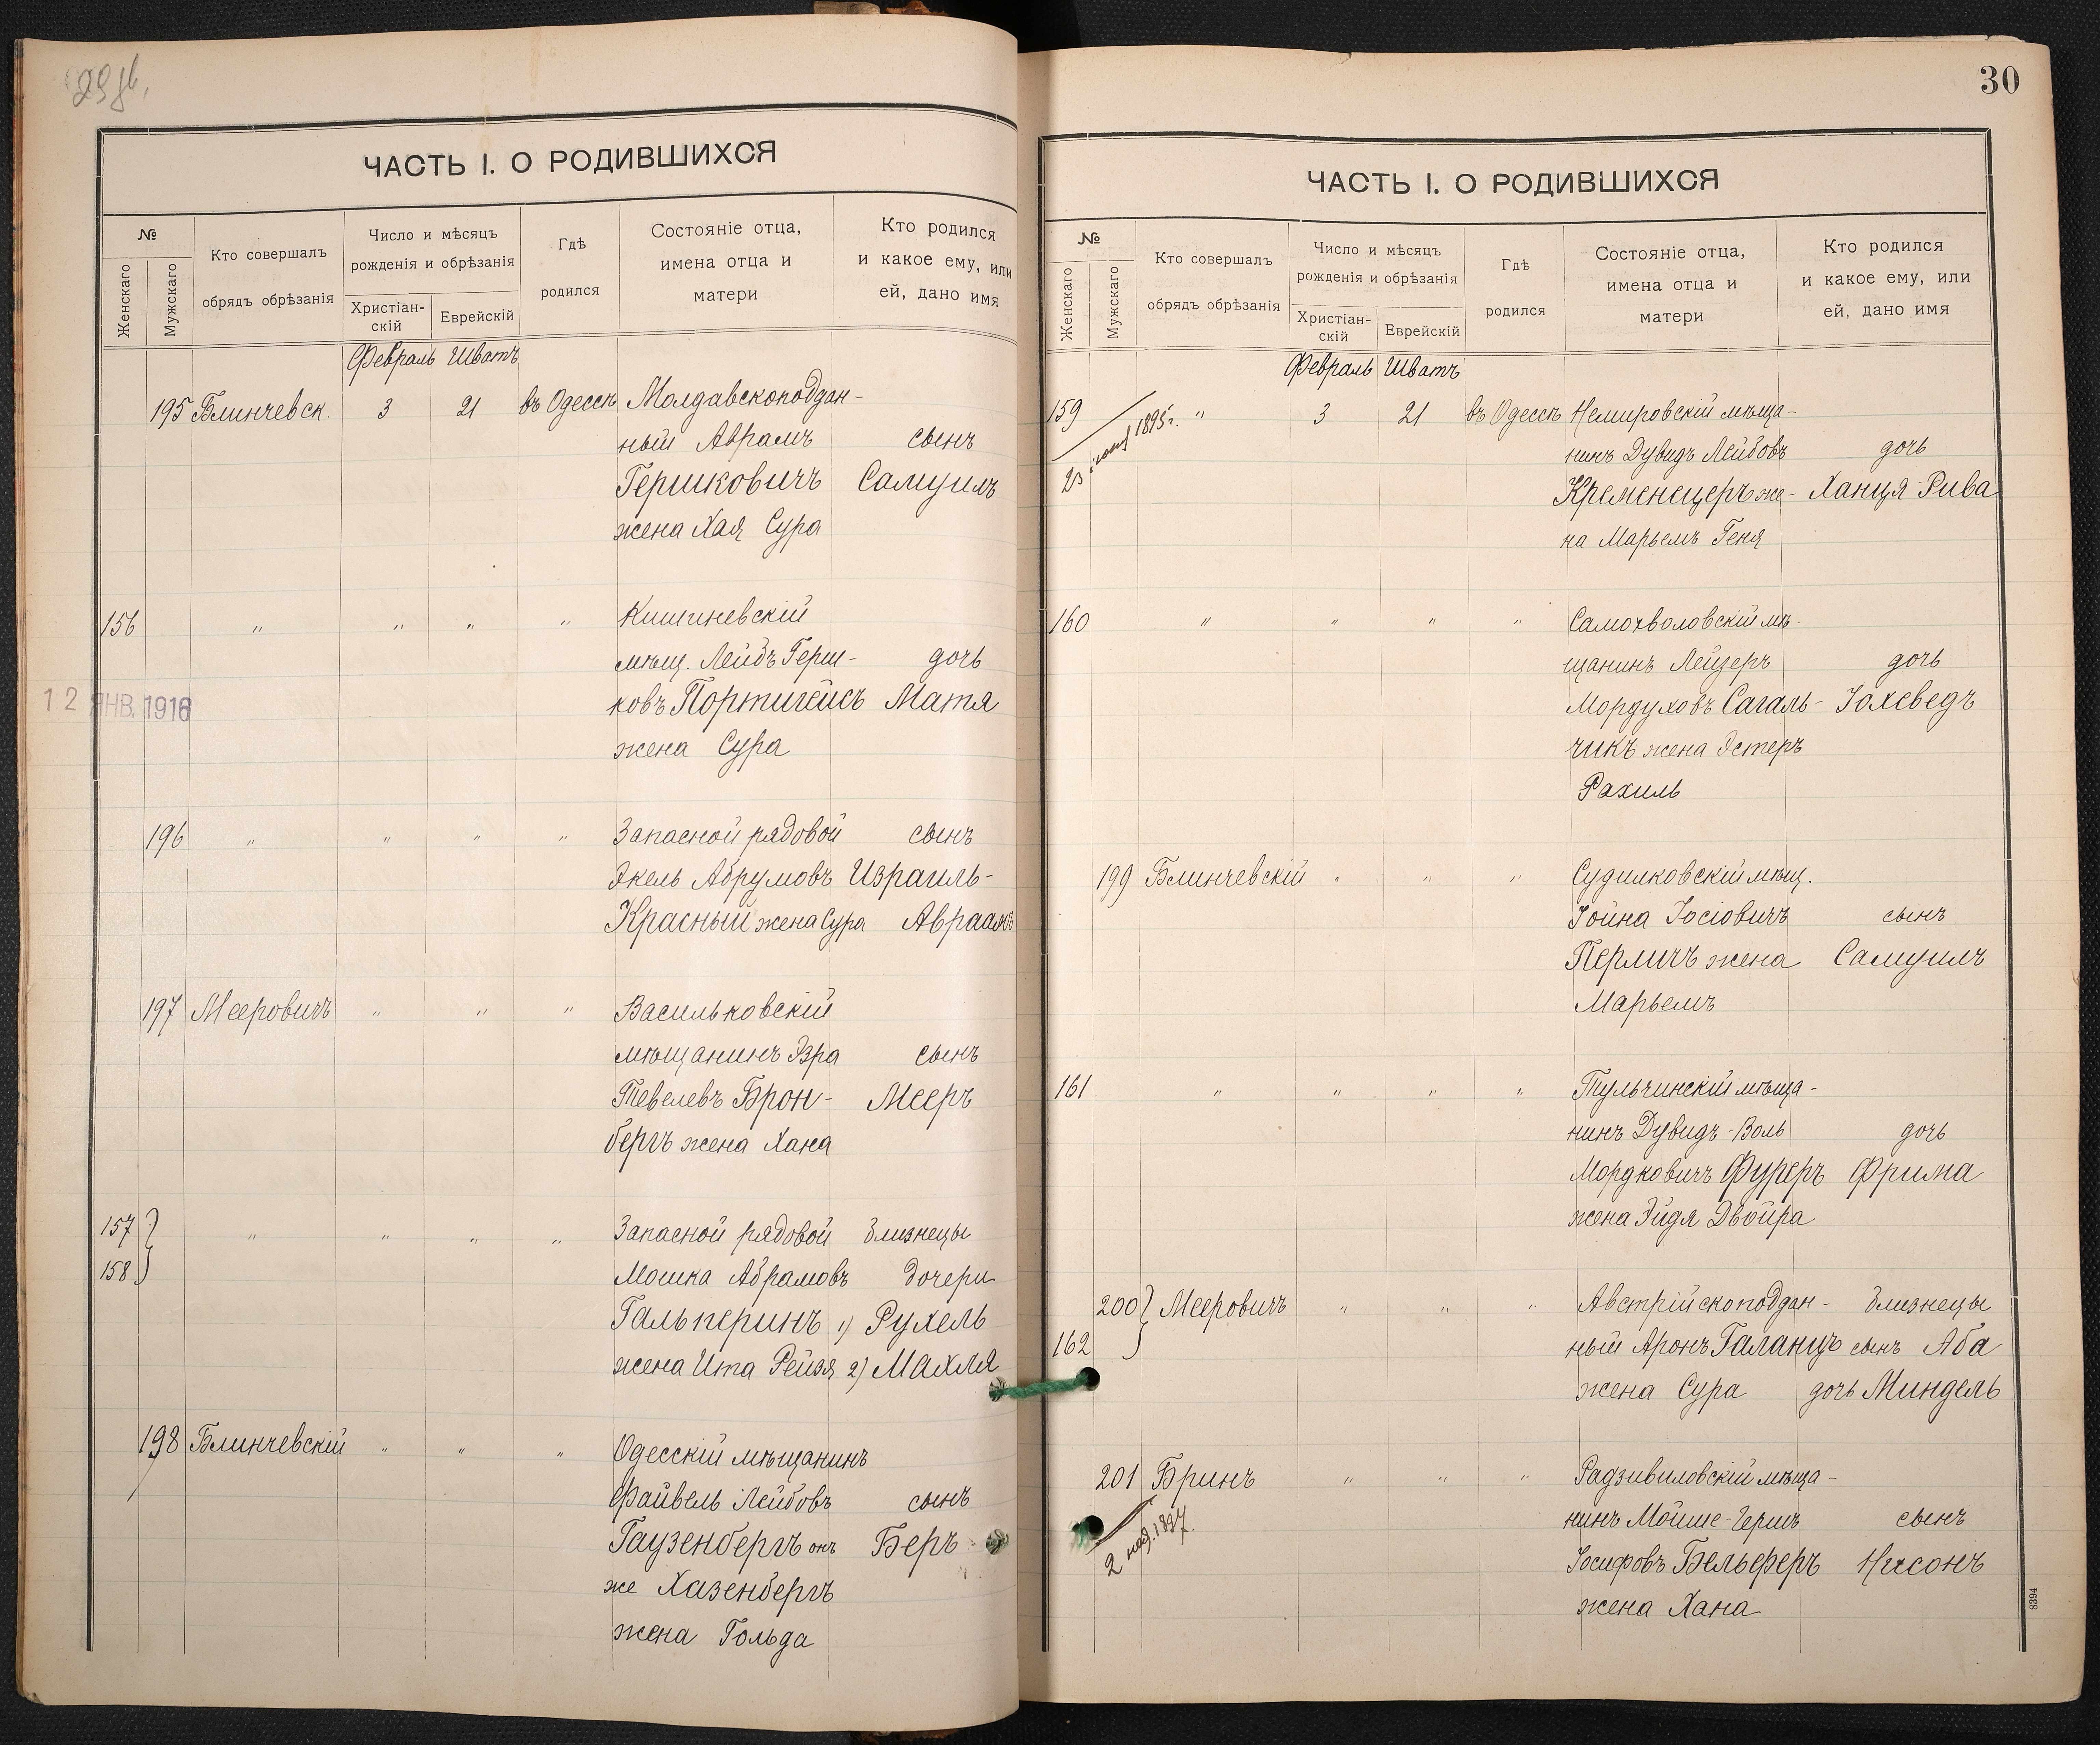 ЧАСТЬ I. О РОДИВШИХСЯ
№
Женскаго
Мужскаго
Кто совершалъ
обрядъ обрѣзанія
Число и мѣсяцъ
рожденія и обрѣзанія
Христіан-
скій
Еврейскій
Гдѣ
родился
Состояніе отца,
имена отца и
матери
Кто родился
и какое ему, или
ей, дано имя
Февраль Шватъ
195 Блинчевск. 3 21 въ Одессѣ Молдавскоподдан-
ный Аврамъ сынъ
Гершковичъ Самуилъ
жена Хая Сура
156 " " " " Кишиневскій
мѣщ. Лейбъ Герш- дочь
ковъ Портигейсъ Матя
жена Сура
12 ЯНВ. 1916
196 " " " " Запасной рядовой сынъ
Экель Абрумовъ Израиль-
Красный жена Сура Авраамъ
197 Мееровичъ " " " Васильковскій
мѣщанинъ Эзра сынъ
Тевелевъ Брон- Мееръ
бергъ жена Хана
157 " " " " Запасной рядовой близнецы
158 Мошка Абрамовъ дочери
Гальперинъ 1) Рухель
жена Ита Рейзя 2) Махля
198 Блинчевскій " " " Одесскій мѣщанинъ
Файвель Лейбовъ сынъ
Гаузенбергъ онъ Беръ
же Хазенбергъ
жена Гольда
30
ЧАСТЬ I. О РОДИВШИХСЯ
№
Женскаго
Мужскаго
Кто совершалъ
обрядъ обрѣзанія
Число и мѣсяцъ
рожденія и обрѣзанія
Христіан-
скій
Еврейскій
Гдѣ
родился
Состояніе отца,
имена отца и
матери
Кто родился
и какое ему, или
ей, дано имя
Февраль Шватъ
159 " 3 21 въ Одессѣ Немировскій мѣща-
1895г.
нинъ Дувидъ Лейбовъ дочь
Кременецеръ же- Ханця-Рива
на Марьемъ Геня
160 " " " " Самохваловскій мѣ-
щанинъ Лейзеръ дочь
Мордуховъ Сагаль- Іохеведъ
чикъ жена Эстеръ
Рахиль
199 Блинчевскій " " " Судилковскій мѣщ.
Іойна Іосіовичъ сынъ
Перличъ жена Самуилъ
Марьемъ
161 " " " " Тульчинскій мѣща-
нинъ Дувидъ-Воль дочь
Мордковичъ Фуреръ Фрима
жена Эйдя Двойра
200 Мееровичъ " " " Австрійскоподдан- близнецы
162 ный Аронъ Галанцъ сынъ Аба
жена Сура дочь Миндель
201 Бринъ " " " Радзивиловскій мѣща-
нинъ Мойше-Гершъ сынъ
2 1897.
Іосифовъ Бельферъ Нисонъ
жена Хана
8394